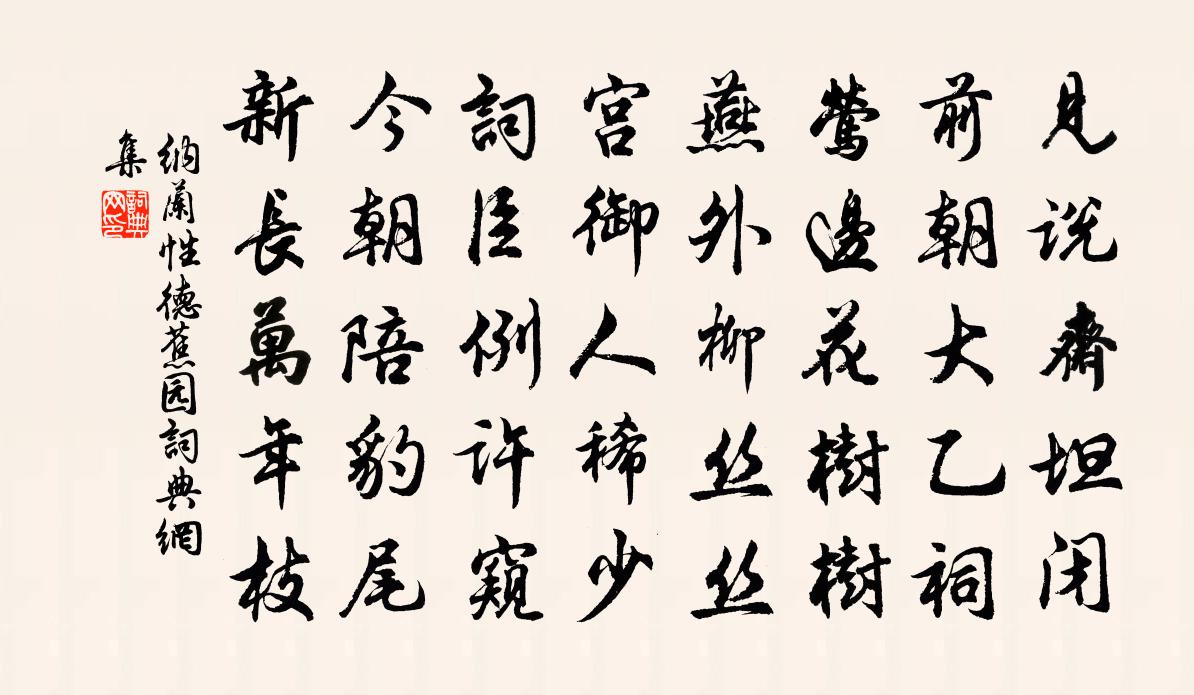 见说斋坛闭
前朝大乙祠
莺邊花樹樹
燕外柳丝丝
宫御人稀少
詞臣例许窺
今朝陪豹尾
新長萬年枝
纳蘭性德蕉园詞典網
集
詞典網印